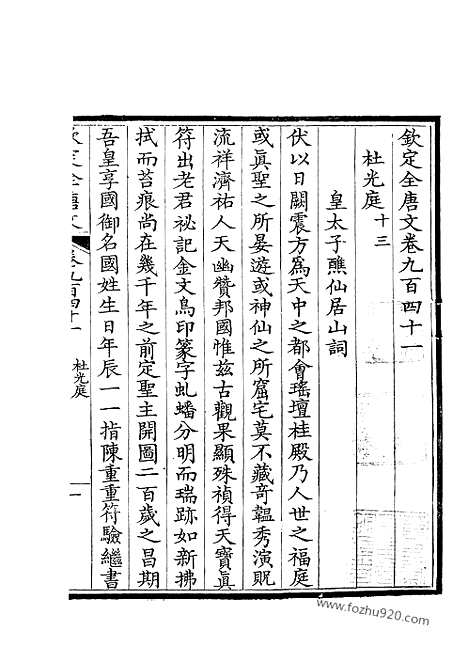 欽定全唐文卷九百四十一
杜光庭十三
皇太子醮仙居山詞
伏以日闕震方爲天中之都會瑤壇桂殿乃人世之福庭
或眞聖之所晏遊或神仙之所窟宅莫不藏奇韞秀演貺
流祥濟祐人天幽贊邦國惟茲古觀果顯殊禎得天寶眞
符出老君祕記金文鳥印篆字虬蟠分明而瑞跡如新拂
拭而苔痕尚在幾千年之前定聖主開圖二百歲之昌期
吾皇享國御名國姓生日年辰一一指陳重重符驗繼書
欽定全唐文 卷九百四十一 杜光庭 一
www.fozhu920.com